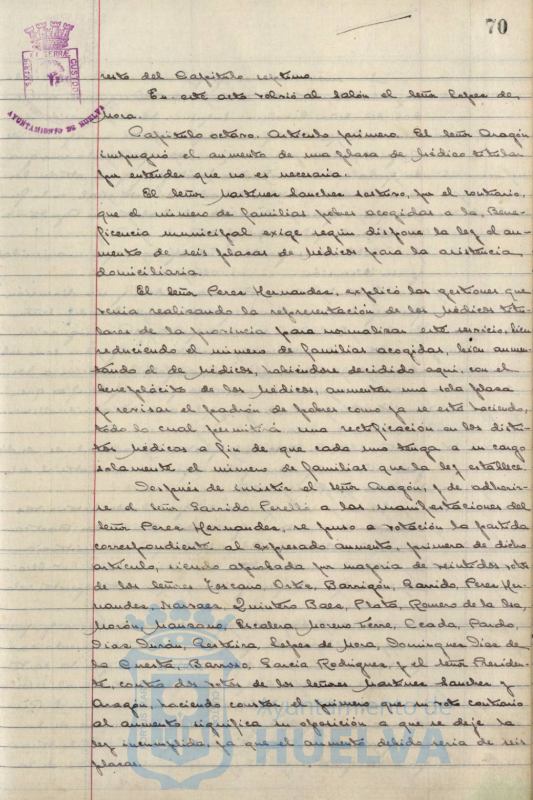 70
AYUNTAMIENTO DE HUELVA
resto del Capítulo septimo.
En este acto volvió al salón el Señor Lopez de
Mora.
Capítulo octavo. Artículo primero. El Señor Aragón
impugnó el aumento de una plaza de Médico titular
por entender que no es necesaria.
El Señor Martinez Sanchez sostuvo, por el contrario,
que el número de familias pobres acogidas a la Bene-
ficencia municipal exige según dispone la ley el au-
mento de seis plazas de Médicos para la asistencia
domiciliaria.
El Señor Perez Hernandez, explicó las gestiones que
venia realizando la representación de los Médicos titu-
lares de la provincia para normalizar este servicio, bien
reduciendo el número de familias acogidas, bien aumen-
tando el de Médicos, habiéndose decidido aquí, con el
beneplácito de los Médicos, aumentar una sola plaza
y revisar el padrón de pobres como ya se está haciendo,
todo lo cual permitirá una rectificación en los distri-
tos Médicos a fin de que cada uno tenga a su cargo
solamente el número de familias que la ley establece.
Después de insistir el Señor Aragón, y de adherir-
se el Señor Garrido Perelló a las manifestaciones del
Señor Perez Hernandez, se puso a votación la partida
correspondiente al expresado aumento, primera de dicho
artículo, siendo aprobada por mayoria de veintidos votos
de los Señores Toscano, Ortiz, Barrigón, Garrido, Perez Her-
nandez, Narvaez, Quintero Baez, Prota, Romero de la
Morón, Manzano, Escalera, Moreno Pardo,
Diaz Durán, Lopez de Mora, Dominguez, Diaz de
la Cuesta, Barroso, Garcia Rodriguez y el Señor Presiden-
te, contra dos votos de los Señores Martinez Sanchez y
Aragón, haciendo constar el primero que su voto contrario
al aumento significa su oposición a que se deje la
ley incumplida, ya que el aumento debido seria de seis
plazas.
Ayuntamiento de
HUELVA